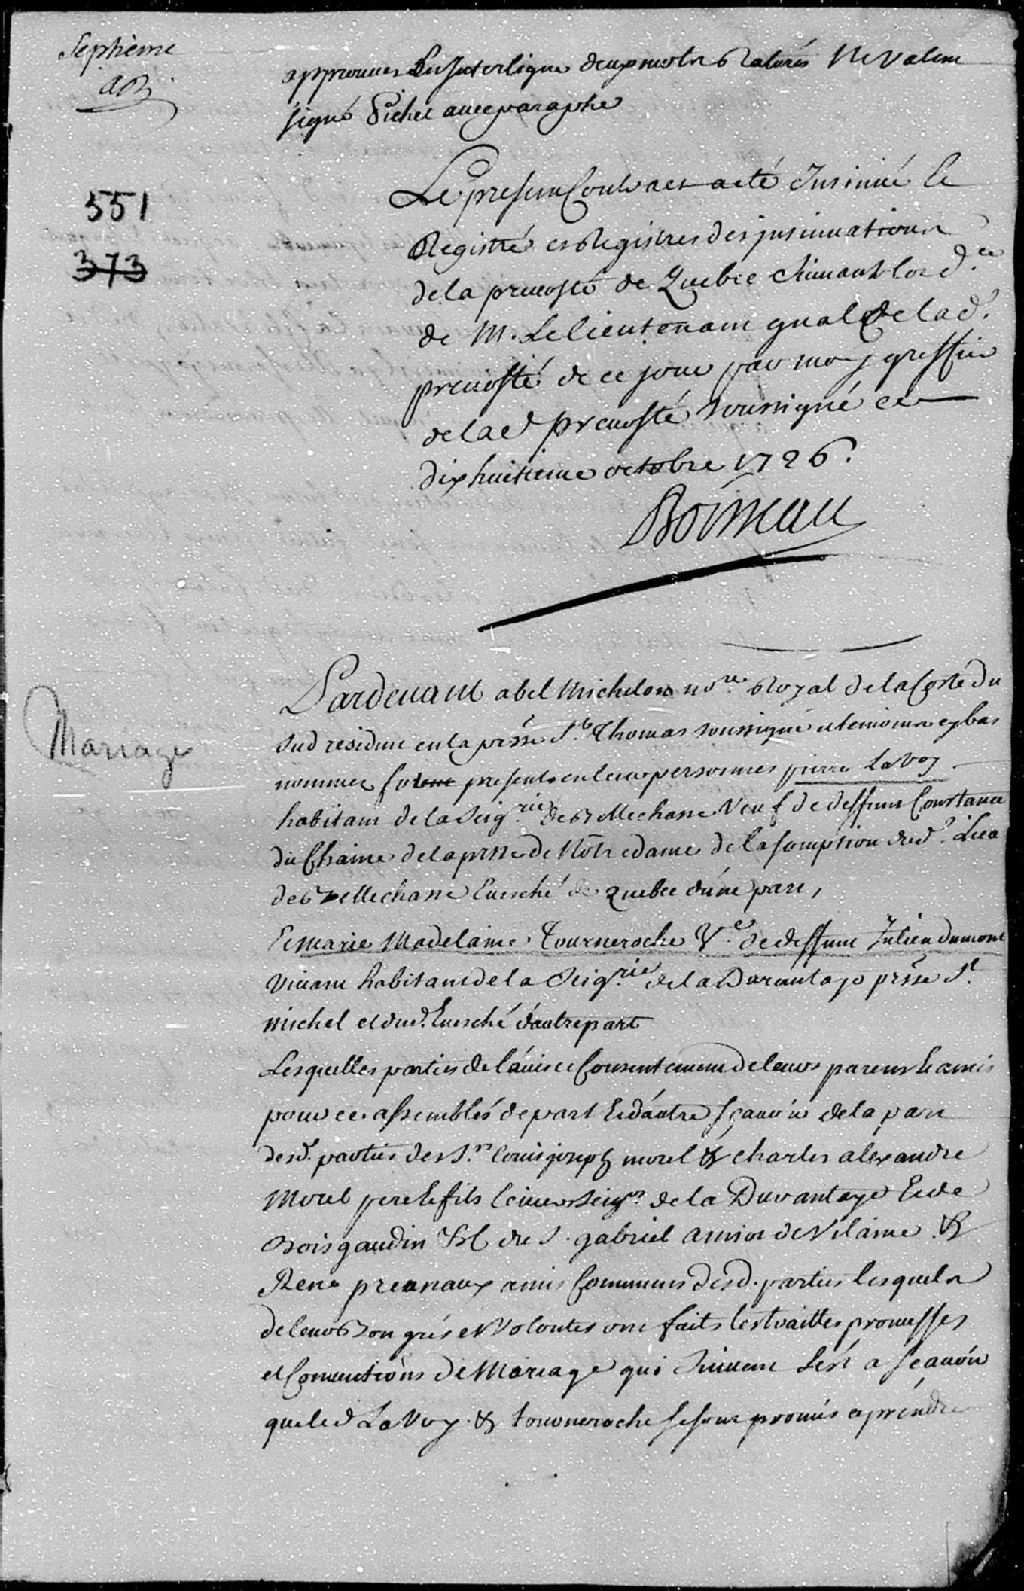 Septieme
551
373
approuvée L'Interligne deux mots Raturés Ne Valent
signé Pichet avec paraphe
Le present Contract a esté Insinué Et
Registré es Registres des Insinuations
de la prevosté de Quebec Suivant lord.ce
de M. Le lieutenant gnal de lad.
prevosté de ce jour par moy greffier
de lad prevosté soussigné ce
dixhuitieme octobre 1726.
Boisseau
Mariage
Pardevant abel Michelon no.re Royal de la Coste du
Sud resident en la p̃sse St Thomas soussigné et temoins cy bas
nommez furent presents en leurs personnes pierre Lavoy
habitant de la Seig.rie de Bellechasse Veuf de deffunte Constance
du Chaine de la p̃sse de Nõtre dame de lasomption dud. Lieu
de Bellechasse Evesché de Quebec dúne part,
Et marie Madelaine Tourneroche V.e de deffunt Julien dumont
Vivant habitant de la Seig.rie de la Durantaye p̃sse St
michel et dud. Evesché d'autre part
Lesquelles parties de lávis et Consentement de leurs parens & amis
pour ce assemblés de part Et dáutre sçavoir de la part
desd. parties des S.rs louis joseph morel & charles alexandre
Morel pere & fils Seig.rs de la Durantaye Et de
Boisgaudin du S. gabriel amiot de Vilaine &
René preanaux amis Communs desd. parties lesquels
de leurs Bon grés et Volontés ont faits les traittés promesses
et Conventions de Mariage qui Suivent Sést a Scavoir
que led Lavoy & tourneroche se sont promis prendre